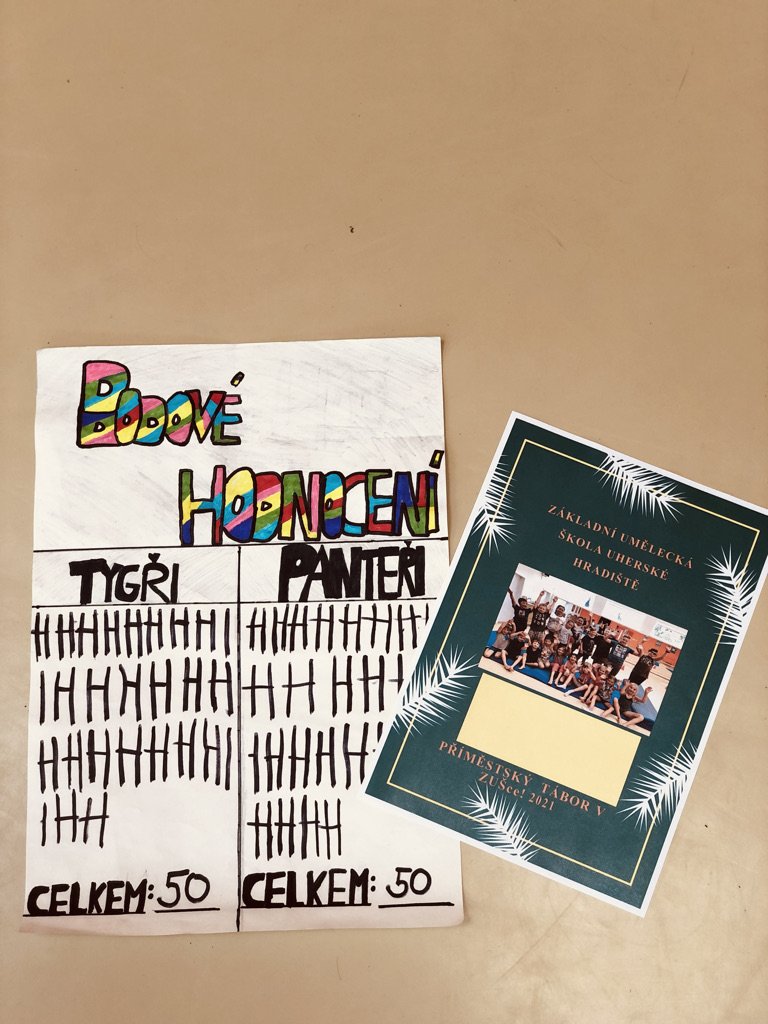 BODOVÉ
HODNOCENÍ
TYGŘI
PANTEŘI
CELKEM: 50
CELKEM: 50
ZÁKLADNÍ UMĚLECKÁ
ŠKOLA UHERSKÉ
HRADIŠTĚ
PŘÍMĚSTSKÝ TÁBOR V
ZUŠce! 2021